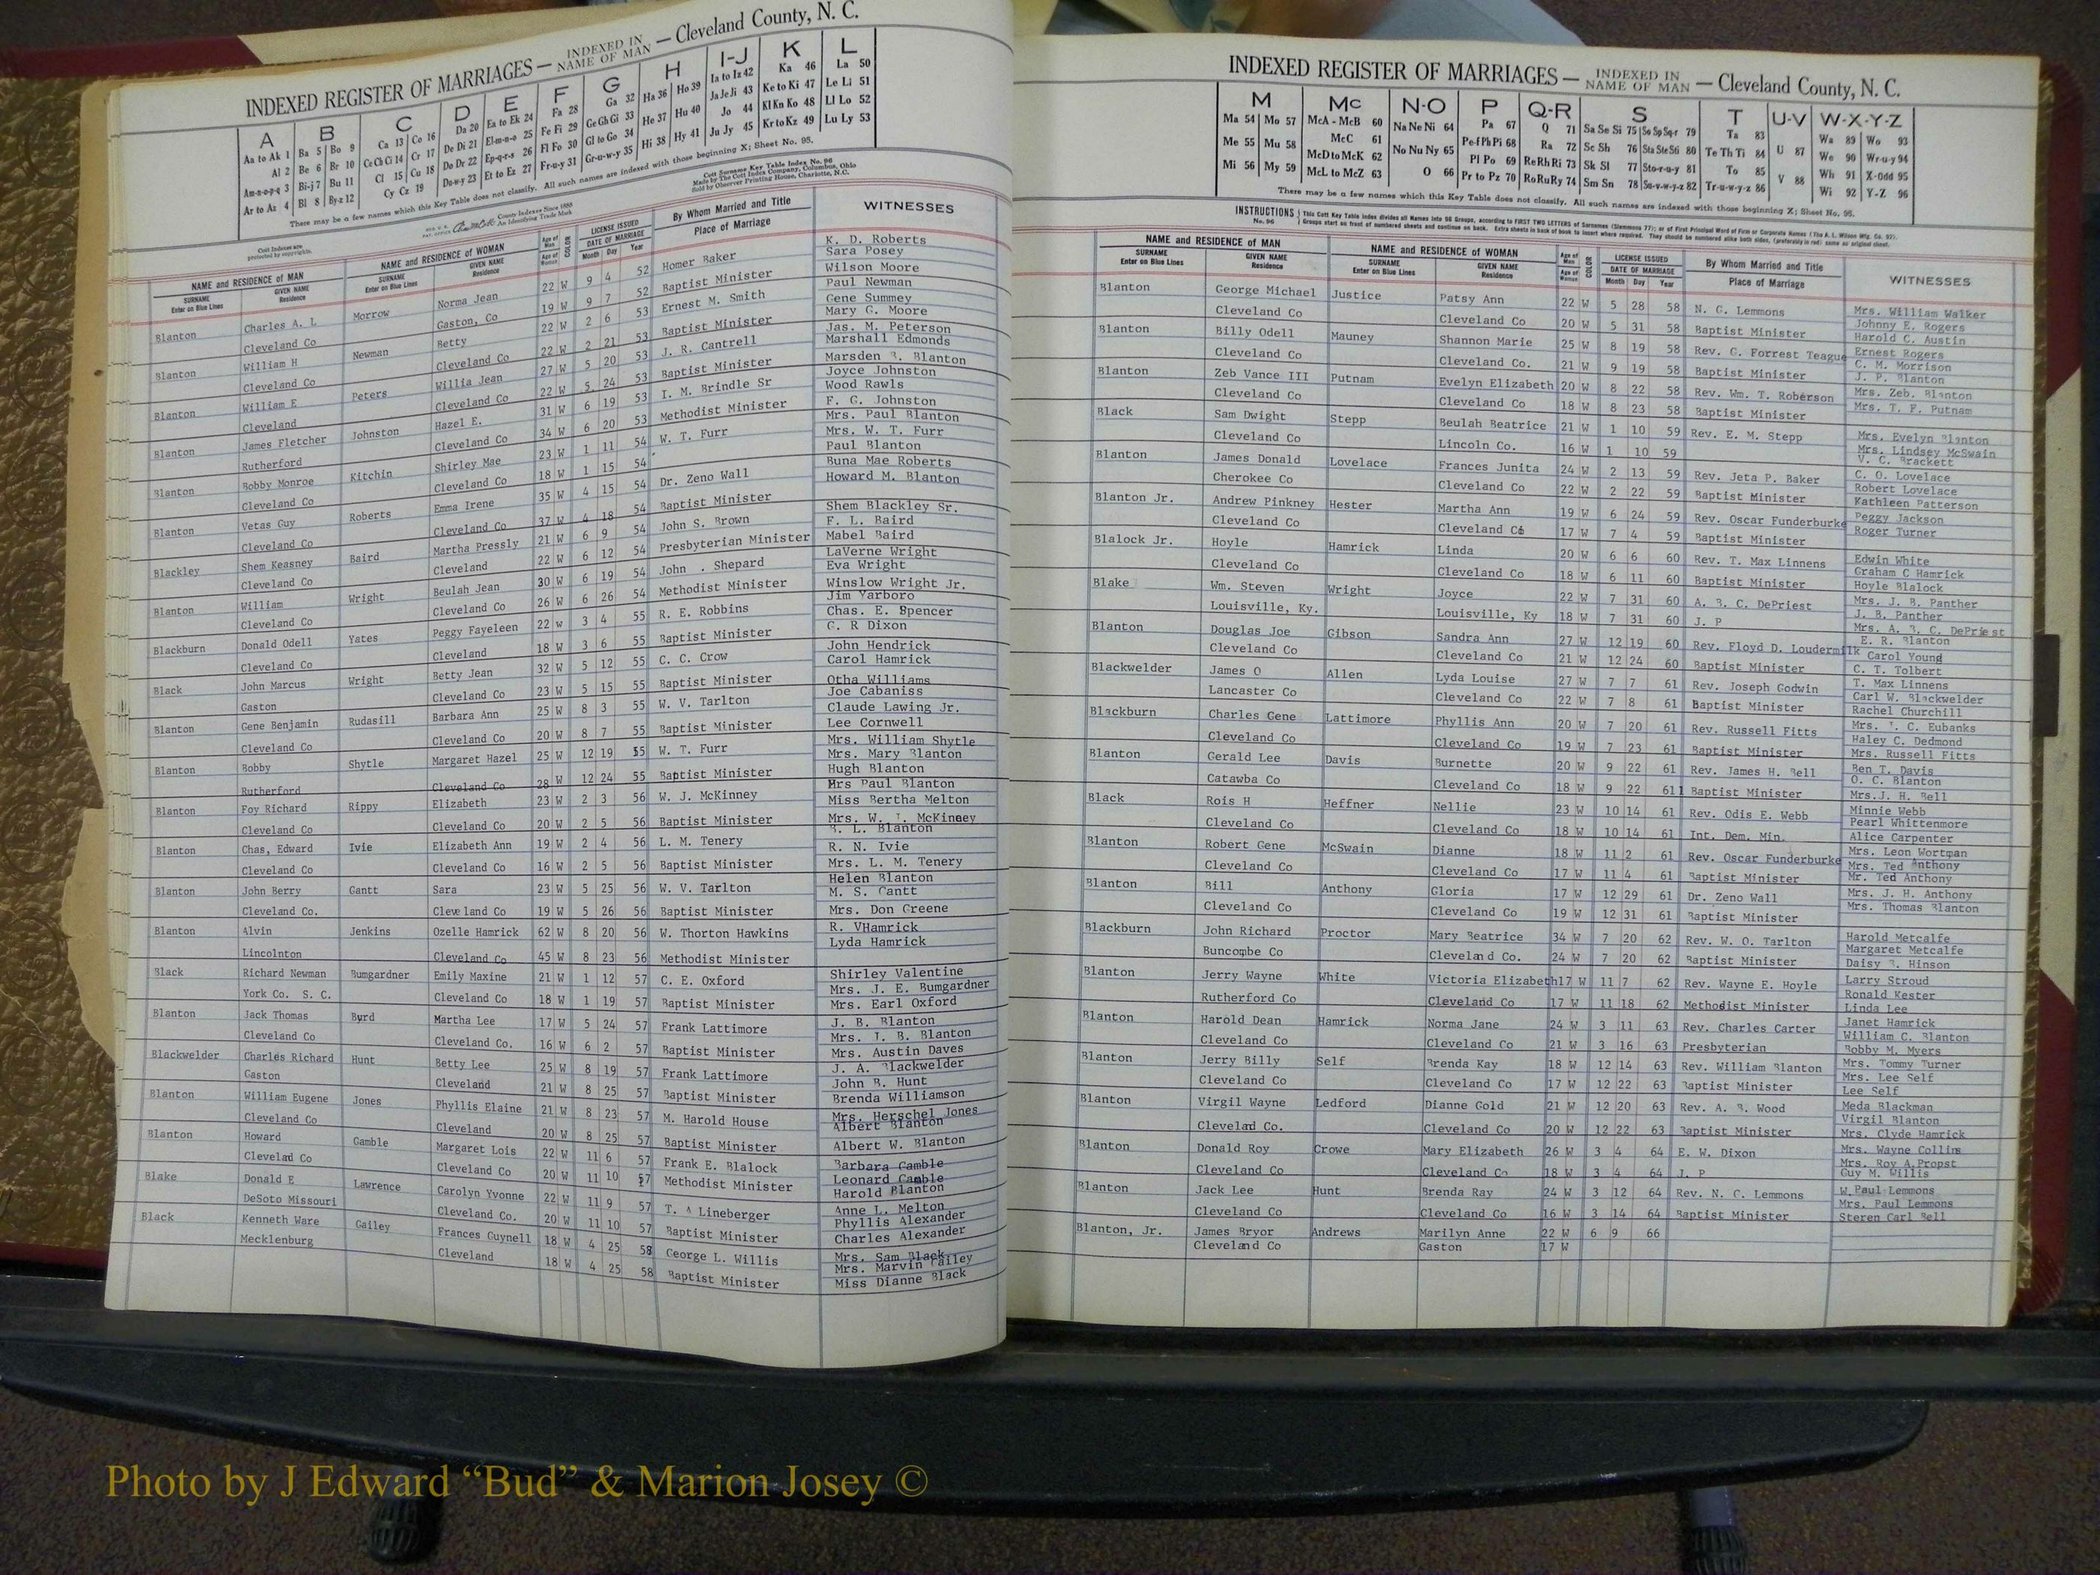 INDEXED REGISTER OF MARRIAGES — INDEXED IN NAME OF MAN — Cleveland County, N. C.
A B C D E F G H I-J K L
Aa to Ak 1 Ba 5 Bo 9 Ca 13 Co 16 Da 20 Ea to Ek 24 Fa 28 Ga 32 Ha 36 Ho 39 Ia to Iz 42 Ka 46 La 50
Al 2 Be 6 Br 10 Ce Ch Ci 14 Cr 17 De Di 21 El-m-n-o 25 Fe Fi 29 Ge Gh Gi 33 He 37 Hu 40 Ja Je Ji 43 Ke to Ki 47 Le Li 51
Am-n-o-p-q 3 Bi-j 7 Bu 11 Cl 15 Cu 18 Do Dr 22 Ep-q-r-s 26 Fl Fo 30 Gl to Go 34 Hi 38 Hy 41 Jo 44 Kl Kn Ko 48 Ll Lo 52
Ar to Az 4 Bl 8 By-z 12 Cy Cz 19 Du-w-y 23 Et to Ez 27 Fr-u-y 31 Gr-u-w-y 35 Ju Jy 45 Kr to Kz 49 Lu Ly 53
There may be a few names which this Key Table does not classify. All such names are indexed with those beginning X; Sheet No. 95.
Cott Surname Key Table Index No. 96
Made by The Cott Index Company, Columbus, Ohio
Sold by Observer Printing House, Charlotte, N.C.
Cott Indexes are protected by copyrights.
County Indexes Since 1888
An Identifying Trade Mark
NAME and RESIDENCE of MAN NAME and RESIDENCE of WOMAN Age of Man Age of Woman COLOR LICENSE ISSUED DATE OF MARRIAGE By Whom Married and Title Place of Marriage WITNESSES
SURNAME Enter on Blue Lines GIVEN NAME Residence SURNAME Enter on Blue Lines GIVEN NAME Residence Month Day Year
K. D. Roberts
Blanton Charles A. L Morrow Norma Jean 22 W 9 4 52 Homer Baker Sara Posey
Cleveland Co Gaston, Co 19 W 9 7 52 Baptist Minister Wilson Moore
Blanton William H Newman Betty 22 W 2 6 53 Ernest M. Smith Paul Newman
Gene Summey
Cleveland Co Cleveland Co 22 W 2 21 53 Baptist Minister Mary G. Moore
Blanton William E Peters Willia Jean 27 W 5 20 53 J. R. Cantrell Jas. M. Peterson
Marshall Edmonds
Cleveland Cleveland Co 22 W 5 24 53 Baptist Minister Marsden B. Blanton
Blanton James Fletcher Johnston Hazel E. 31 W 6 19 53 I. M. Brindle Sr Joyce Johnston
Wood Rawls
Rutherford Cleveland Co 34 W 6 20 53 Methodist Minister F. G. Johnston
Blanton Bobby Monroe Kitchin Shirley Mae 23 W 1 11 54 W. T. Furr Mrs. Paul Blanton
Mrs. W. T. Furr
Cleveland Co Cleveland Co 18 W 1 15 54 Paul Blanton
Blanton Vetas Guy Roberts Emma Irene 35 W 4 15 54 Dr. Zeno Wall Buna Mae Roberts
Cleveland Co Cleveland Co 37 W 4 18 54 Baptist Minister Howard M. Blanton
Blackley Shem Keasney Baird Martha Pressly 21 W 6 9 54 John S. Brown Shem Blackley Sr.
F. L. Baird
Cleveland Co Cleveland 22 W 6 12 54 Presbyterian Minister Mabel Baird
Blanton William Wright Beulah Jean 30 W 6 19 54 John . Shepard LaVerne Wright
Eva Wright
Cleveland Co Cleveland Co 26 W 6 26 54 Methodist Minister Winslow Wright Jr.
Blackburn Donald Odell Yates Peggy Fayeleen 22 w 3 4 55 R. E. Robbins Jim Yarboro
Chas. E. Spencer
Cleveland Co Cleveland 18 W 3 6 55 Baptist Minister C. R Dixon
Black John Marcus Wright Betty Jean 32 W 5 12 55 C. C. Crow John Hendrick
Carol Hamrick
Gaston Cleveland Co 23 W 5 15 55 Baptist Minister Otha Williams
Blanton Gene Benjamin Rudasill Barbara Ann 25 W 8 3 55 W. V. Tarlton Joe Cabaniss
Claude Lawing Jr.
Cleveland Co Cleveland Co 20 W 8 7 55 Baptist Minister Lee Cornwell
Blanton Bobby Shytle Margaret Hazel 25 W 12 19 55 W. T. Furr Mrs. William Shytle
Mrs. Mary Blanton
Rutherford Cleveland Co 28 W 12 24 55 Baptist Minister Hugh Blanton
Blanton Foy Richard Rippy Elizabeth 23 W 2 3 56 W. J. McKinney Mrs Paul Blanton
Miss Bertha Melton
Cleveland Co Cleveland Co 20 W 2 5 56 Baptist Minister Mrs. W. J. McKinney
Blanton Chas, Edward Ivie Elizabeth Ann 19 W 2 4 56 L. M. Tenery B. L. Blanton
R. N. Ivie
Cleveland Co Cleveland Co 16 W 2 5 56 Baptist Minister Mrs. L. M. Tenery
Blanton John Berry Gantt Sara 23 W 5 25 56 W. V. Tarlton Helen Blanton
M. S. Gantt
Cleveland Co. Cleveland Co 19 W 5 26 56 Baptist Minister Mrs. Don Greene
Blanton Alvin Jenkins Ozelle Hamrick 62 W 8 20 56 W. Thorton Hawkins R. VHamrick
Lyda Hamrick
Lincolnton Cleveland Co 45 W 8 23 56 Methodist Minister
Black Richard Newman Bumgardner Emily Maxine 21 W 1 12 57 C. E. Oxford Shirley Valentine
Mrs. J. E. Bumgardner
York Co. S. C. Cleveland Co 18 W 1 19 57 Baptist Minister Mrs. Earl Oxford
Blanton Jack Thomas Byrd Martha Lee 17 W 5 24 57 Frank Lattimore J. B. Blanton
Mrs. J. B. Blanton
Cleveland Co Cleveland Co. 16 W 6 2 57 Baptist Minister Mrs. Austin Daves
Blackwelder Charles Richard Hunt Betty Lee 25 W 8 19 57 Frank Lattimore J. A. Blackwelder
John B. Hunt
Gaston Cleveland 21 W 8 25 57 Baptist Minister Brenda Williamson
Blanton William Eugene Jones Phyllis Elaine 21 W 8 23 57 M. Harold House Mrs. Herschel Jones
Albert Blanton
Cleveland Co Cleveland 20 W 8 25 57 Baptist Minister Albert W. Blanton
Blanton Howard Gamble Margaret Lois 22 W 11 6 57 Frank E. Blalock Barbara Gamble
Leonard Gamble
Cleveland Co Cleveland Co 20 W 11 10 57 Methodist Minister Harold Blanton
Blake Donald E Lawrence Carolyn Yvonne 22 W 11 9 57 T. A Lineberger Anne L. Melton
Phyllis Alexander
DeSoto Missouri Cleveland Co. 20 W 11 10 57 Baptist Minister Charles Alexander
Black Kenneth Ware Gailey Frances Guynell 18 W 4 25 58 George L. Willis Mrs. Sam Black
Mrs. Marvin Gailey
Mecklenburg Cleveland 18 W 4 25 58 Baptist Minister Miss Dianne Black
INDEXED REGISTER OF MARRIAGES — INDEXED IN NAME OF MAN — Cleveland County, N. C.
M Mc N-O P Q-R S T U-V W-X-Y-Z
Ma 54 Mo 57 McA - McB 60 Na Ne Ni 64 Pa 67 Q 71 Sa Se Si 75 So Sp Sq-r 79 Ta 83 U 87 Wa 89 Wo 93
Me 55 Mu 58 McC 61 No Nu Ny 65 Pe-f Ph Pi 68 Ra 72 Sc Sh 76 Sta Ste Sti 80 Te Th Ti 84 V 88 We 90 Wr-u-y 94
Mi 56 My 59 McD to McK 62 O 66 Pl Po 69 Re Rh Ri 73 Sk Sl 77 Sto-r-u-y 81 To 85 Wh 91 X-Odd 95
McL to McZ 63 Pr to Pz 70 Ro Ru Ry 74 Sm Sn 78 Su-v-w-y-z 82 Tr-u-w-y-z 86 Wi 92 Y-Z 96
There may be a few names which this Key Table does not classify. All such names are indexed with those beginning X; Sheet No. 95.
INSTRUCTIONS No. 96 This Cott Key Table Index divides all Names into 96 Groups, according to FIRST TWO LETTERS of Surnames
NAME and RESIDENCE of MAN NAME and RESIDENCE of WOMAN Age of Man Age of Woman COLOR LICENSE ISSUED DATE OF MARRIAGE By Whom Married and Title Place of Marriage WITNESSES
SURNAME Enter on Blue Lines GIVEN NAME Residence SURNAME Enter on Blue Lines GIVEN NAME Residence Month Day Year
Blanton George Michael Justice Patsy Ann 22 W 5 28 58 N. G. Lemmons Mrs. William Walker
Johnny E. Rogers
Cleveland Co Cleveland Co 20 W 5 31 58 Baptist Minister Harold C. Austin
Blanton Billy Odell Mauney Shannon Marie 25 W 8 19 58 Rev. G. Forrest Teague Ernest Rogers
C. M. Morrison
Cleveland Co Cleveland Co. 21 W 9 19 58 Baptist Minister J. P. Blanton
Blanton Zeb Vance III Putnam Evelyn Elizabeth 20 W 8 22 58 Rev. Wm. T. Roberson Mrs. Zeb. Blanton
Cleveland Co Cleveland Co 18 W 8 23 58 Baptist Minister Mrs. T. F. Putnam
Black Sam Dwight Stepp Beulah Beatrice 21 W 1 10 59 Rev. E. M. Stepp Mrs. Evelyn Blanton
Mrs. Lindsey McSwain
Cleveland Co Lincoln Co. 16 W 1 10 59 V. C. Brackett
Blanton James Donald Lovelace Frances Junita 24 W 2 13 59 Rev. Jeta P. Baker C. O. Lovelace
Robert Lovelace
Cherokee Co Cleveland Co 22 W 2 22 59 Baptist Minister Kathleen Patterson
Blanton Jr. Andrew Pinkney Hester Martha Ann 19 W 6 24 59 Rev. Oscar Funderburke Peggy Jackson
Roger Turner
Cleveland Co Cleveland Co 17 W 7 4 59 Baptist Minister
Blalock Jr. Hoyle Hamrick Linda 20 W 6 6 60 Rev. T. Max Linnens Edwin White
Graham C Hamrick
Cleveland Co Cleveland Co 18 W 6 11 60 Baptist Minister Hoyle Blalock
Blake Wm. Steven Wright Joyce 22 W 7 31 60 A. B. C. DePriest Mrs. J. B. Panther
J. B. Panther
Louisville, Ky. Louisville, Ky 18 W 7 31 60 J. P Mrs. A. B. C. DePriest
Blanton Douglas Joe Gibson Sandra Ann 27 W 12 19 60 Rev. Floyd D. Loudermilk E. R. Blanton
Carol Young
Cleveland Co Cleveland Co 21 W 12 24 60 Baptist Minister C. T. Tolbert
Blackwelder James O Allen Lyda Louise 27 W 7 7 61 Rev. Joseph Godwin T. Max Linnens
Carl W. Blackwelder
Lancaster Co Cleveland Co 22 W 7 8 61 Baptist Minister Rachel Churchill
Blackburn Charles Gene Lattimore Phyllis Ann 20 W 7 20 61 Rev. Russell Fitts Mrs. I. C. Eubanks
Haley C. Dedmond
Cleveland Co Cleveland Co 19 W 7 23 61 Baptist Minister Mrs. Russell Fitts
Blanton Gerald Lee Davis Burnette 20 W 9 22 61 Rev. James H. Bell Ben T. Davis
O. C. Blanton
Catawba Co Cleveland Co 18 W 9 22 611 Baptist Minister Mrs.J. H. Bell
Black Rois H Heffner Nellie 23 W 10 14 61 Rev. Odis E. Webb Minnie Webb
Pearl Whittenmore
Cleveland Co Cleveland Co 18 W 10 14 61 Int. Dem. Min. Alice Carpenter
Blanton Robert Gene McSwain Dianne 18 W 11 2 61 Rev. Oscar Funderburke Mrs. Leon Wortman
Mrs. Ted Anthony
Cleveland Co Cleveland Co 17 W 11 4 61 Baptist Minister Mr. Ted Anthony
Blanton Bill Anthony Gloria 17 W 12 29 61 Dr. Zeno Wall Mrs. J. H. Anthony
Cleveland Co Cleveland Co 19 W 12 31 61 Baptist Minister Mrs. Thomas Blanton
Blackburn John Richard Proctor Mary Beatrice 34 W 7 20 62 Rev. W. O. Tarlton Harold Metcalfe
Margaret Metcalfe
Buncombe Co Cleveland Co. 24 W 7 20 62 Baptist Minister Daisy B. Hinson
Blanton Jerry Wayne White Victoria Elizabeth 17 W 11 7 62 Rev. Wayne E. Hoyle Larry Stroud
Ronald Kester
Rutherford Co Cleveland Co 17 W 11 18 62 Methodist Minister Linda Lee
Blanton Harold Dean Hamrick Norma Jane 24 W 3 11 63 Rev. Charles Carter Janet Hamrick
William C. Blanton
Cleveland Co Cleveland Co 21 W 3 16 63 Presbyterian Bobby M. Myers
Blanton Jerry Billy Self Brenda Kay 18 W 12 14 63 Rev. William Blanton Mrs. Tommy Turner
Mrs. Lee Self
Cleveland Co Cleveland Co 17 W 12 22 63 Baptist Minister Lee Self
Blanton Virgil Wayne Ledford Dianne Gold 21 W 12 20 63 Rev. A. B. Wood Meda Blackman
Virgil Blanton
Cleveland Co. Cleveland Co 20 W 12 22 63 Baptist Minister Mrs. Clyde Hamrick
Blanton Donald Roy Crowe Mary Elizabeth 26 W 3 4 64 E. W. Dixon Mrs. Wayne Collins
Mrs. Roy A.Propst
Cleveland Co Cleveland Co 18 W 3 4 64 J. P Guy M. Willis
Blanton Jack Lee Hunt Brenda Ray 24 W 3 12 64 Rev. N. C. Lemmons W.Paul Lemmons
Mrs. Paul Lemmons
Cleveland Co Cleveland Co 16 W 3 14 64 Baptist Minister Steren Carl Bell
Blanton, Jr. James Bryor Andrews Marilyn Anne 22 W 6 9 66
Cleveland Co Gaston 17 W
Photo by J Edward “Bud” & Marion Josey ©